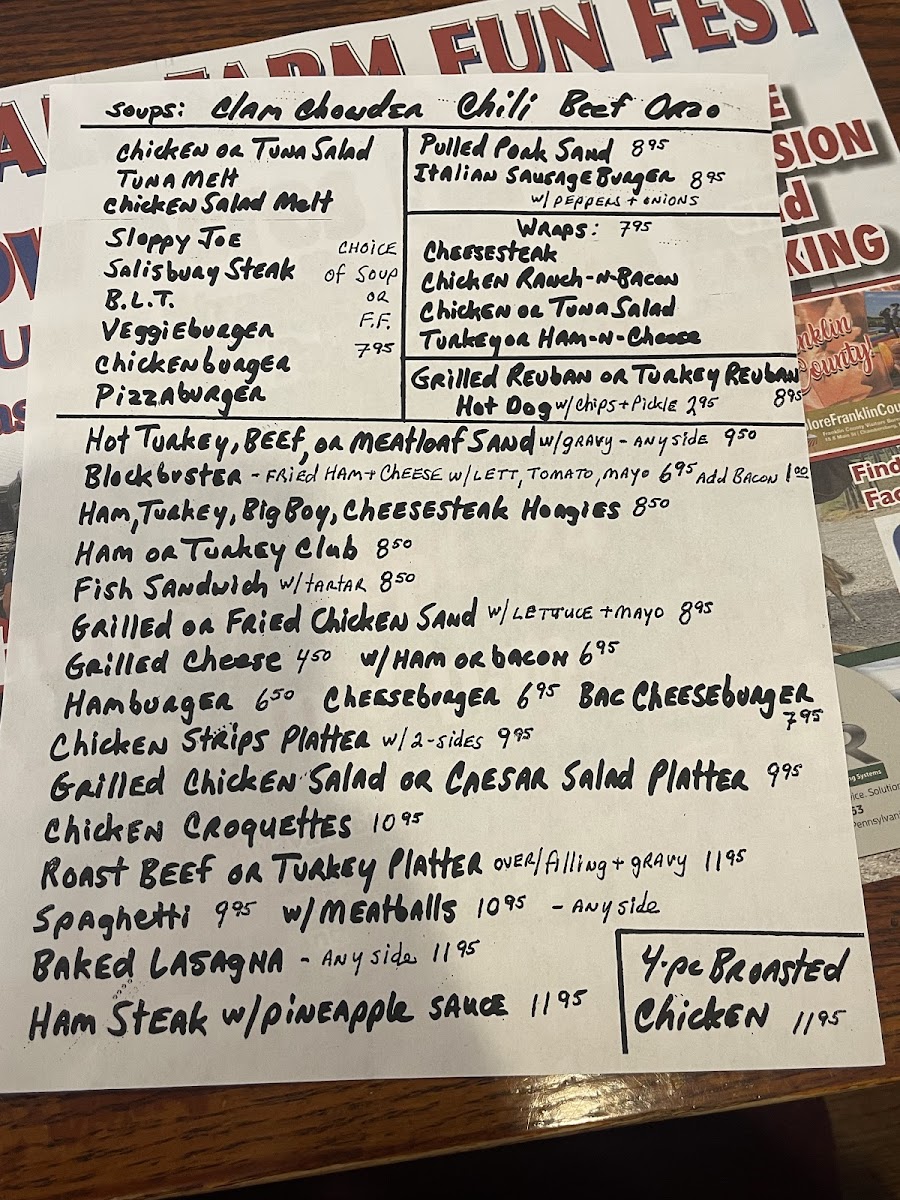 FARM FUN FEST
Soups: Clam Chowder Chili Beef Orzo
Chicken or Tuna Salad
Tuna Melt
Chicken Salad Melt
Sloppy Joe
Salisbury Steak
B.L.T.
Veggieburger
Chickenburger
Pizzaburger
CHOICE
of Soup
OR
F.F.
795
Pulled Pork Sand 8 95
Italian Sausage Burger 8 95
w/ PEPPERS + ONIONS
Wraps: 7 95
Cheesesteak
Chicken Ranch-n-Bacon
Chicken or Tuna Salad
Turkey or Ham-n-Cheese
Grilled Reuban or Turkey Reuban
8 95
Hot Dog w/chips + Pickle 2 95
Hot Turkey, Beef, or Meatloaf Sand w/gravy - any side 9 50
Blockbuster - FRIED HAM + CHEESE w/ LETT, TOMATO, MAYO 6 95 Add Bacon 1 00
Ham, Turkey, Big Boy, Cheesesteak Hoagies 8 50
Ham or Turkey Club 8 50
Fish Sandwich w/ tartar 8 50
Grilled or Fried Chicken Sand w/ LETTUCE + MAYO 8 95
Grilled Cheese 4 50 w/ Ham or bacon 6 95
Hamburger 6 50 Cheeseburger 6 95 Bac Cheeseburger
7 95
Chicken Strips Platter w/ 2-sides 9 95
Grilled Chicken Salad or Caesar Salad Platter 9 95
Chicken Croquettes 10 95
Roast Beef or Turkey Platter over/filling + gravy 11 95
Spaghetti 9 95 w/ Meatballs 10 95 - Any side
Baked Lasagna - Any side 11 95
Ham Steak w/pineapple sauce 11 95
4-pc Broasted
Chicken 11 95
SION
KING
nklin
County!
loreFranklinCou
Find
Fac
ng Systems
ice. Solution
Pennsylvani